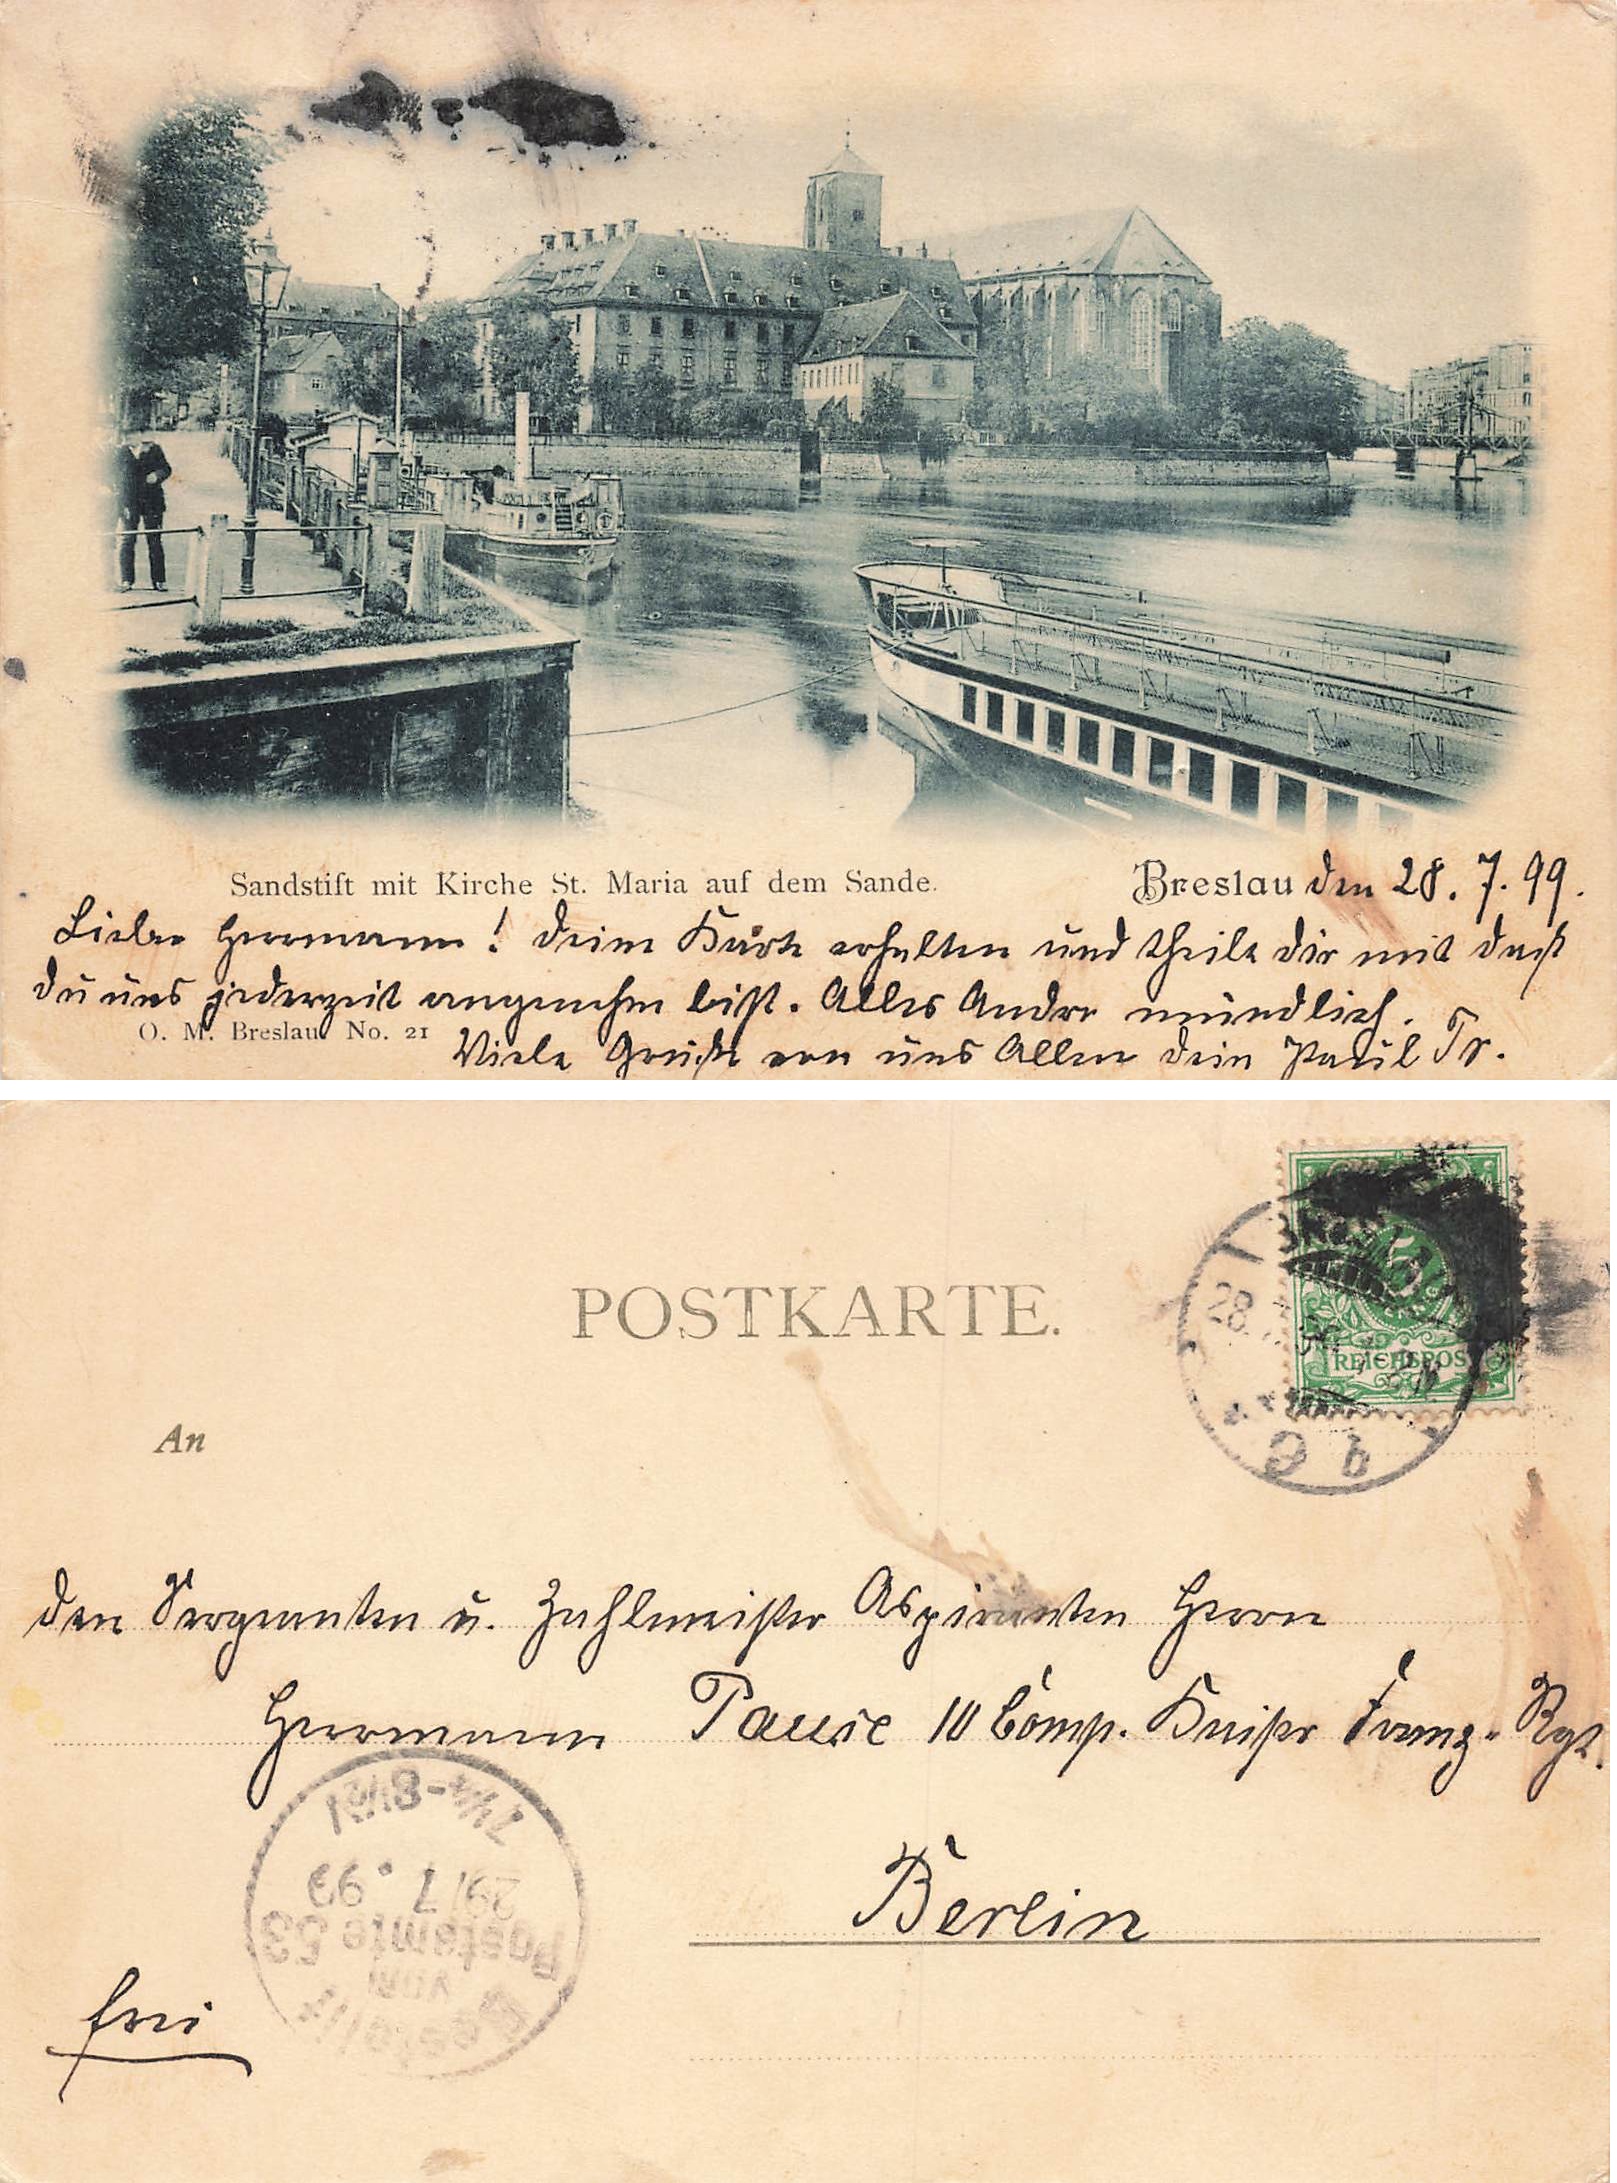 Sandstift mit Kirche St. Maria auf dem Sande.
Breslau den 28. 7. 99.
Lieber Herrmann! Deine Karte erhalten und theile dir mit daß
du uns jederzeit angenehm bist. Alles Andre mündlich.
O. M. Breslau. No. 21
Viele Grüße von uns Allen dein Paul Tr.
POSTKARTE.
REICHSPOST
5
28. 7. 99
An
den Sergeanten u. Zahlmeister Aspiranten Herrn
Herrmann Pause 10 Comp. Kaiser Franz-Rgt.
Berlin
frei
Bestellt
vom
Postamte 53
29/7. 99
7¼-8½V